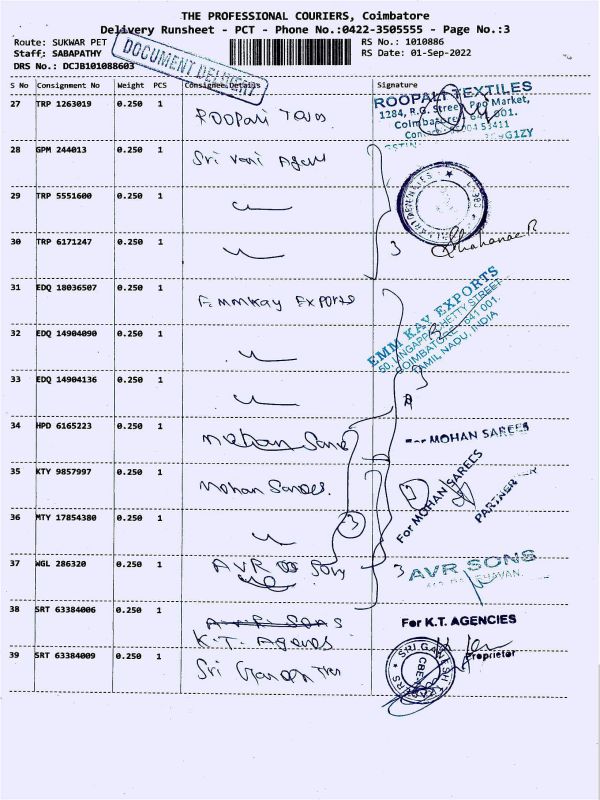 THE PROFESSIONAL COURIERS, Coimbatore
Delivery Runsheet - PCT - Phone No.:0422-3505555 - Page No.:3
Route: SUKWAR PET
RS No.: 1010886
Staff: SABAPATHY
RS Date: 01-Sep-2022
DRS No.: DCJB101088603
DOCUMENT DELIVERY
S No Consignment No Weight PCS Consignee Details Signature
27 TRP 1263019 0.250 1 Roopali Texs
ROOPALI TEXTILES
1284, R.G. Street, Market,
Coimbatore 641 001.
28 GPM 244013 0.250 1 Sri Vani
29 TRP 5551600 0.250 1
30 TRP 6171247 0.250 1
3
31 EDQ 18036507 0.250 1 Emmkay Exports
EMM KAY EXPORTS
STREET
COIMBATORE - 641 001.
TAMIL NADU, INDIA
32 EDQ 14904090 0.250 1
33 EDQ 14904136 0.250 1
34 HPD 6165223 0.250 1 Mohan Sarees
For MOHAN SAREES
35 KTY 9857997 0.250 1 Mohan Sarees.
For MOHAN SAREES
PARTNER
36 MTY 17854380 0.250 1
3
37 WGL 286320 0.250 1 AVR Sons
3
AVR SONS
38 SRT 63384006 0.250 1
K.T. Agencies
For K.T. AGENCIES
Proprietor
39 SRT 63384009 0.250 1 Sri Ganesh Trs
SRI GANESH